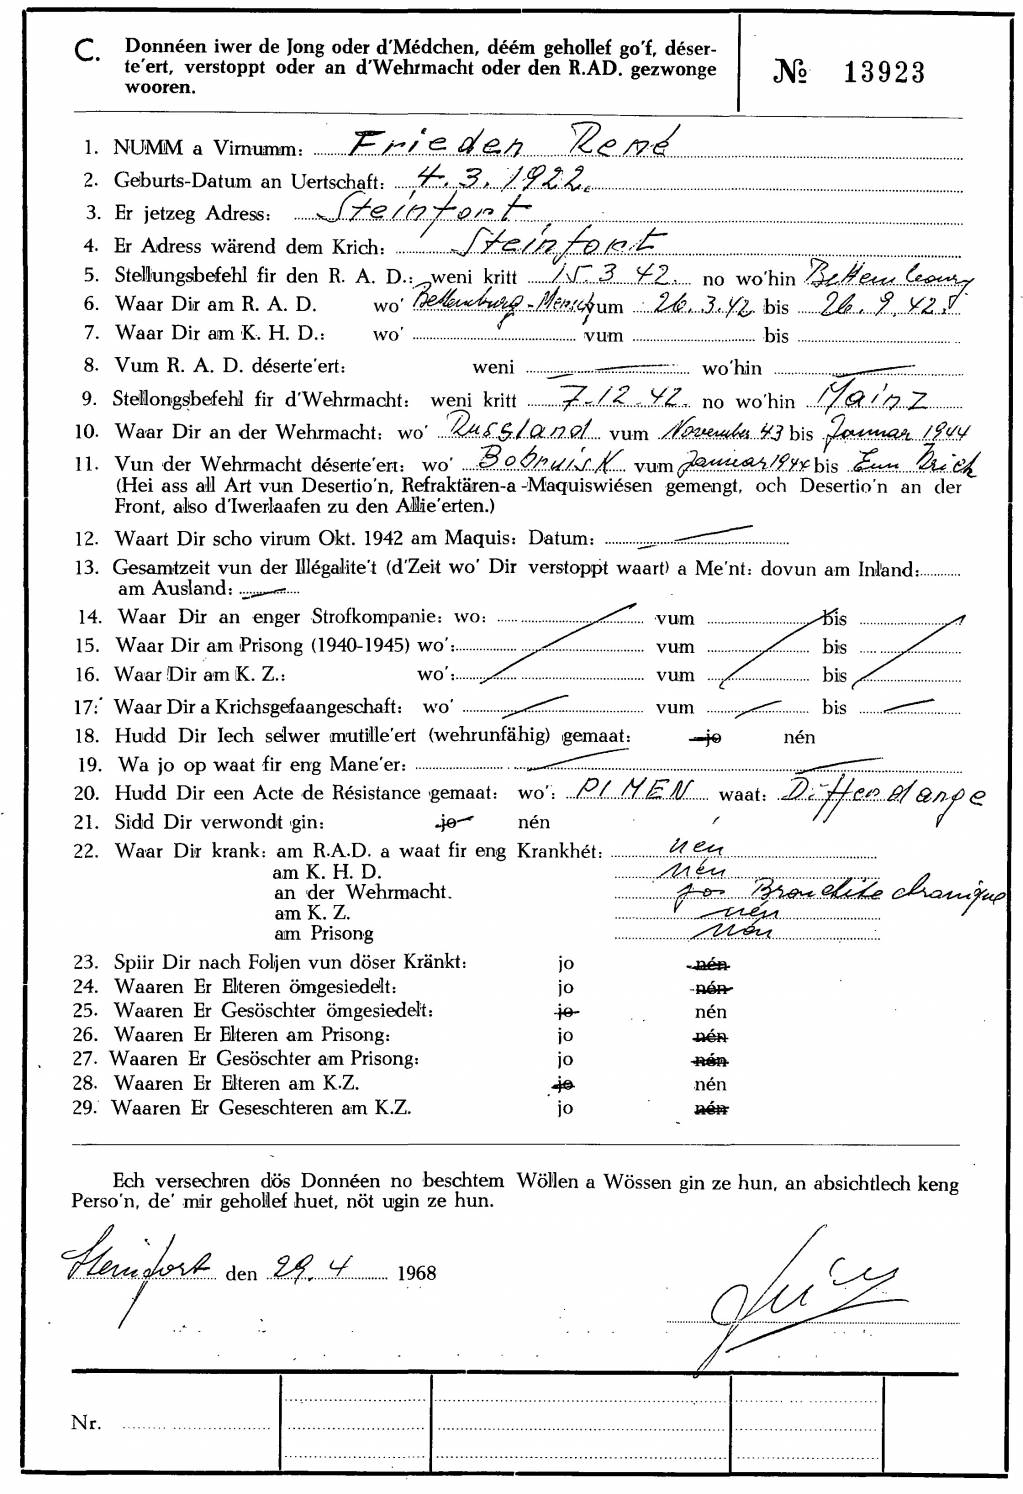 C. Donnéen iwer de Jong oder d'Médchen, déém gehollef go'f, déser-
te'ert, verstoppt oder an d'Wehrmacht oder den R.AD. gezwonge
wooren.
№ 13923
1. NUMM a Virnumm: Frieden René
2. Geburts-Datum an Uertschaft: 4.3.1922.
3. Er jetzeg Adress: Steinfort
4. Er Adress wärend dem Krich: Steinfort
5. Stellungsbefehl fir den R. A. D.: weni kritt 15.3 42. no wo'hin Bettembourg
6. Waar Dir am R. A. D. wo' Bettemburg - vum 26.3.42. bis 26.9.42.
7. Waar Dir am K. H. D.: wo' vum bis
8. Vum R. A. D. déserte'ert: weni wo'hin
9. Stellongsbefehl fir d'Wehrmacht: weni kritt 7.12.42. no wo'hin Mainz
10. Waar Dir an der Wehrmacht: wo' Russland vum November 43 bis Januar 1944
11. Vun der Wehrmacht déserte'ert: wo' Bobruisk vum Januar 1944 bis Enn Krich
(Hei ass all Art vun Desertio'n, Refraktären-a -Maquiswiésen gemengt, och Desertio'n an der
Front, also d'Iwerlaafen zu den Allie'erten.)
12. Waart Dir scho virum Okt. 1942 am Maquis: Datum:
13. Gesamtzeit vun der Illégalite't (d'Zeit wo' Dir verstoppt waart) a Me'nt: dovun am Inland:
am Ausland:
14. Waar Dir an enger Strofkompanie: wo: vum bis
15. Waar Dir am Prisong (1940-1945) wo': vum bis
16. Waar Dir am K. Z.: wo': vum bis
17. Waar Dir a Krichsgefaangeschaft: wo' vum bis
18. Hudd Dir Iech selwer mutille'ert (wehrunfähig) gemaat: jo nén
19. Wa jo op waat fir eng Mane'er:
20. Hudd Dir een Acte de Résistance gemaat: wo': PI MEN waat: Differdange
21. Sidd Dir verwondt gin: jo nén
22. Waar Dir krank: am R.A.D. a waat fir eng Krankhét: nén
am K. H. D. nén
an der Wehrmacht. jo Bronchite chronique
am K. Z. nén
am Prisong nén
23. Spiir Dir nach Foljen vun döser Kränkt: jo nén
24. Waaren Er Elteren ömgesiedelt: jo nén
25. Waaren Er Gesöschter ömgesiedelt: jo nén
26. Waaren Er Elteren am Prisong: jo nén
27. Waaren Er Gesöschter am Prisong: jo nén
28. Waaren Er Elteren am K.Z. jo nén
29. Waaren Er Geseschteren am K.Z. jo nén
Ech versechren dös Donnéen no beschtem Wöllen a Wössen gin ze hun, an absichtlech keng
Perso'n, de' mir gehollef huet, nöt ugin ze hun.
Steinfort den 29.4 1968
Nr.